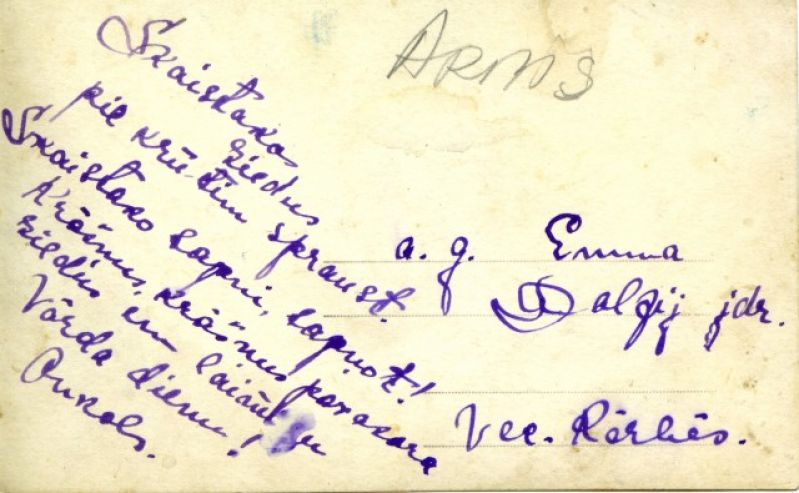 Skaistakos
ziedus
pie krūtīm spraust.
Skaistako sapni, sapņot!
Krāšņus, krāšņus pavasara
ziedus un laimīgu
Vārda dienu!
Onkols.
ARMS
a. g. Emma
Dalfij jdr.
Vec. Kērkēs.